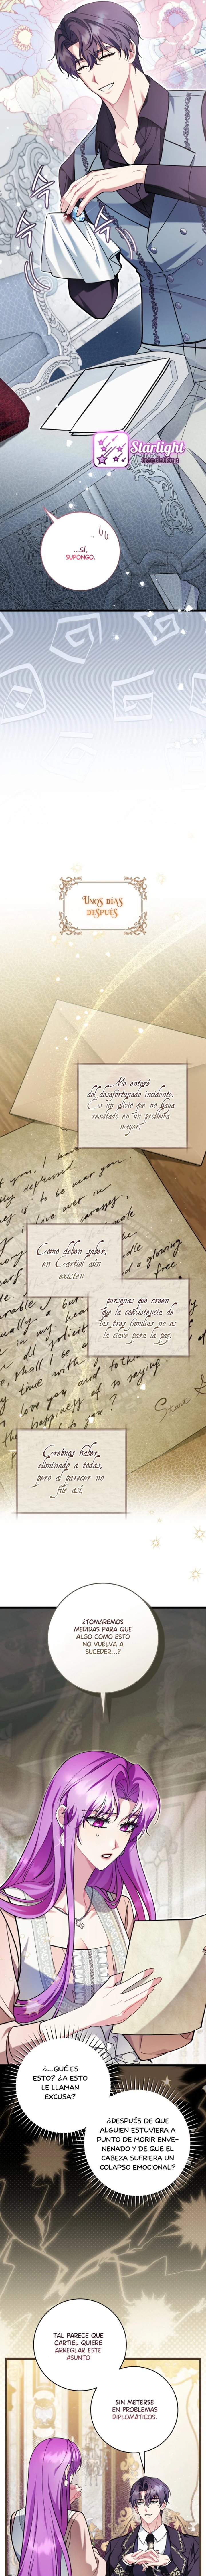 Starlight
...SÍ,
SUPONGO.
UNOS DÍAS
DESPUÉS
Me enteré
del desafortunado incidente.
Es un alivio que no haya
resultado en un problema
mayor.
Como deben saber,
en Cartiel aún
existen
personas que creen
que la coexistencia de
las tres familias no es
la clave para la paz.
Creímos haber
eliminado a todas,
pero al parecer no
fue así.
¿TOMAREMOS
MEDIDAS PARA QUE
ALGO COMO ESTO
NO VUELVA A
SUCEDER...?
¿...QUÉ ES
ESTO? ¿A ESTO
LE LLAMAN
EXCUSA?
¿DESPUÉS DE QUE
ALGUIEN ESTUVIERA A
PUNTO DE MORIR ENVE-
NENADO Y DE QUE EL
CABEZA SUFRIERA UN
COLAPSO EMOCIONAL?
TAL PARECE QUE
CARTIEL QUIERE
ARREGLAR ESTE
ASUNTO
SIN METERSE
EN PROBLEMAS
DIPLOMÁTICOS.